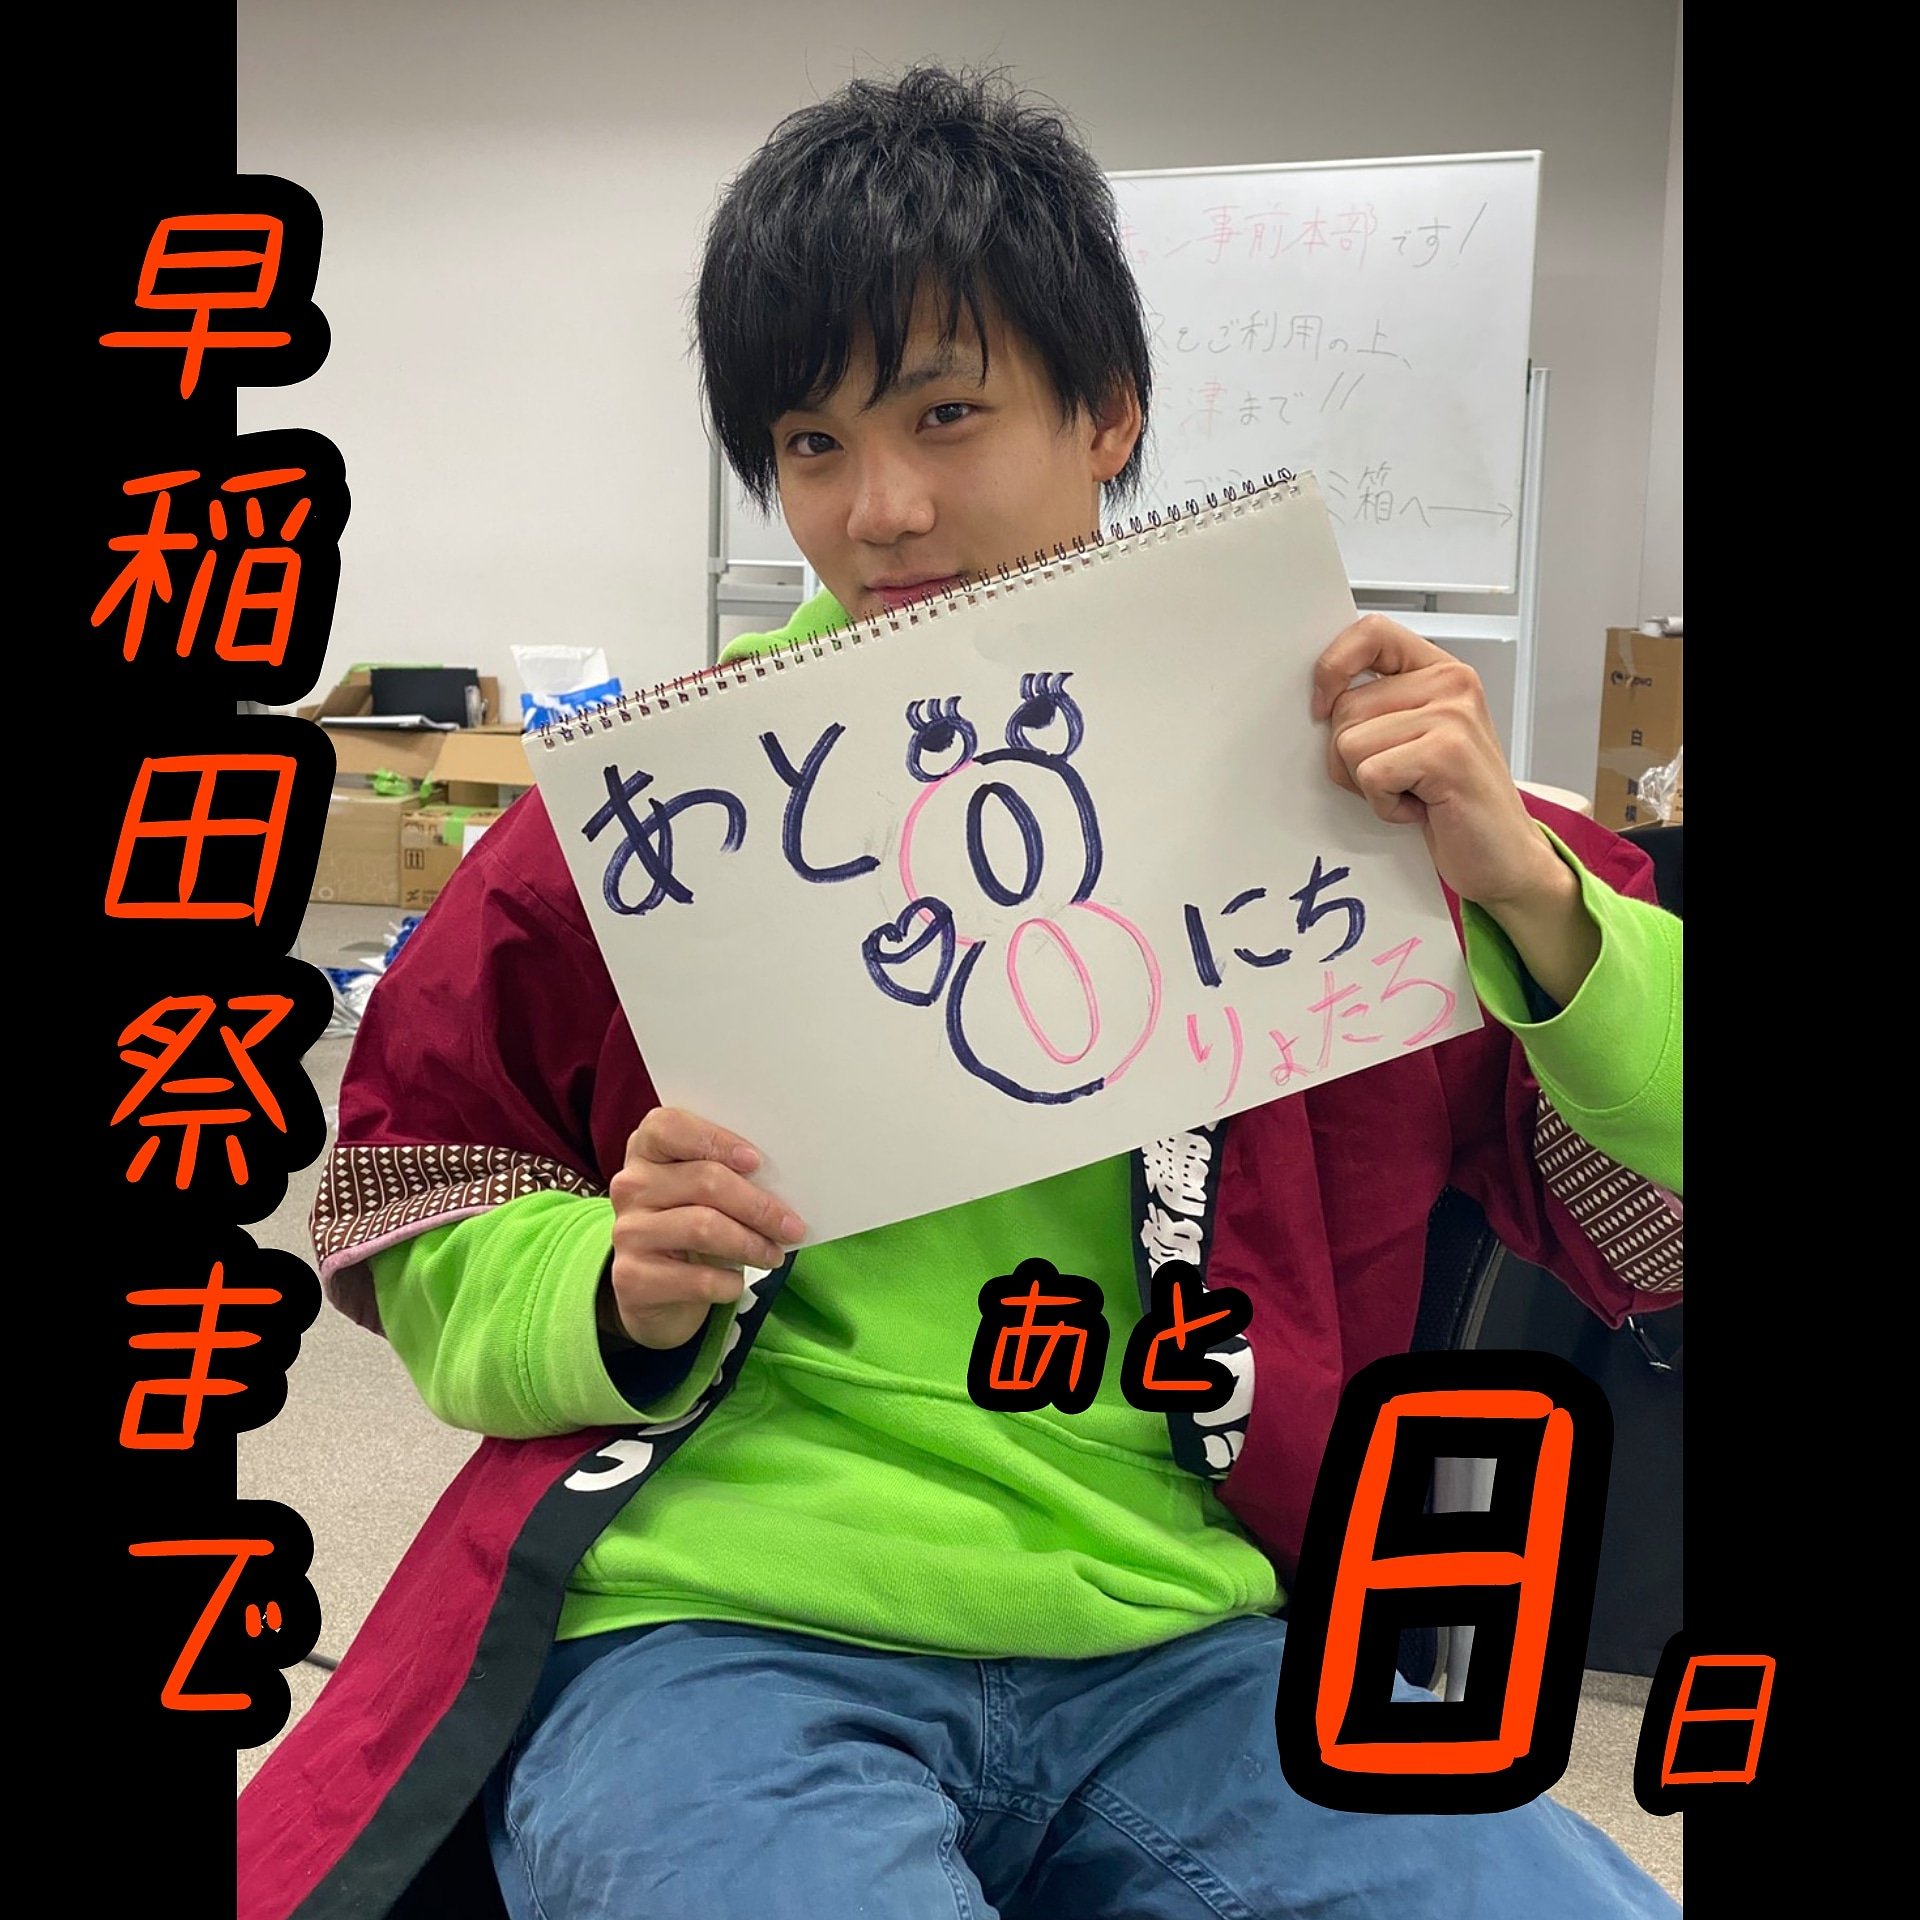 早稲田祭まで
事前本部です!
をご利用の上、
津まで!!
ミ箱へ→
あと8にち
りょたろ
あと
8日